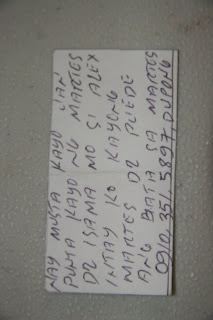 NAY MUSTA KAYO JAN
PUNTA KAYO NG MARTES
DZ ISAMA MO SI ALEX
INTAY KO KAYONG
MARTES DZ PLEDE
ANG BATIA SA MARTES
0910.351.5897